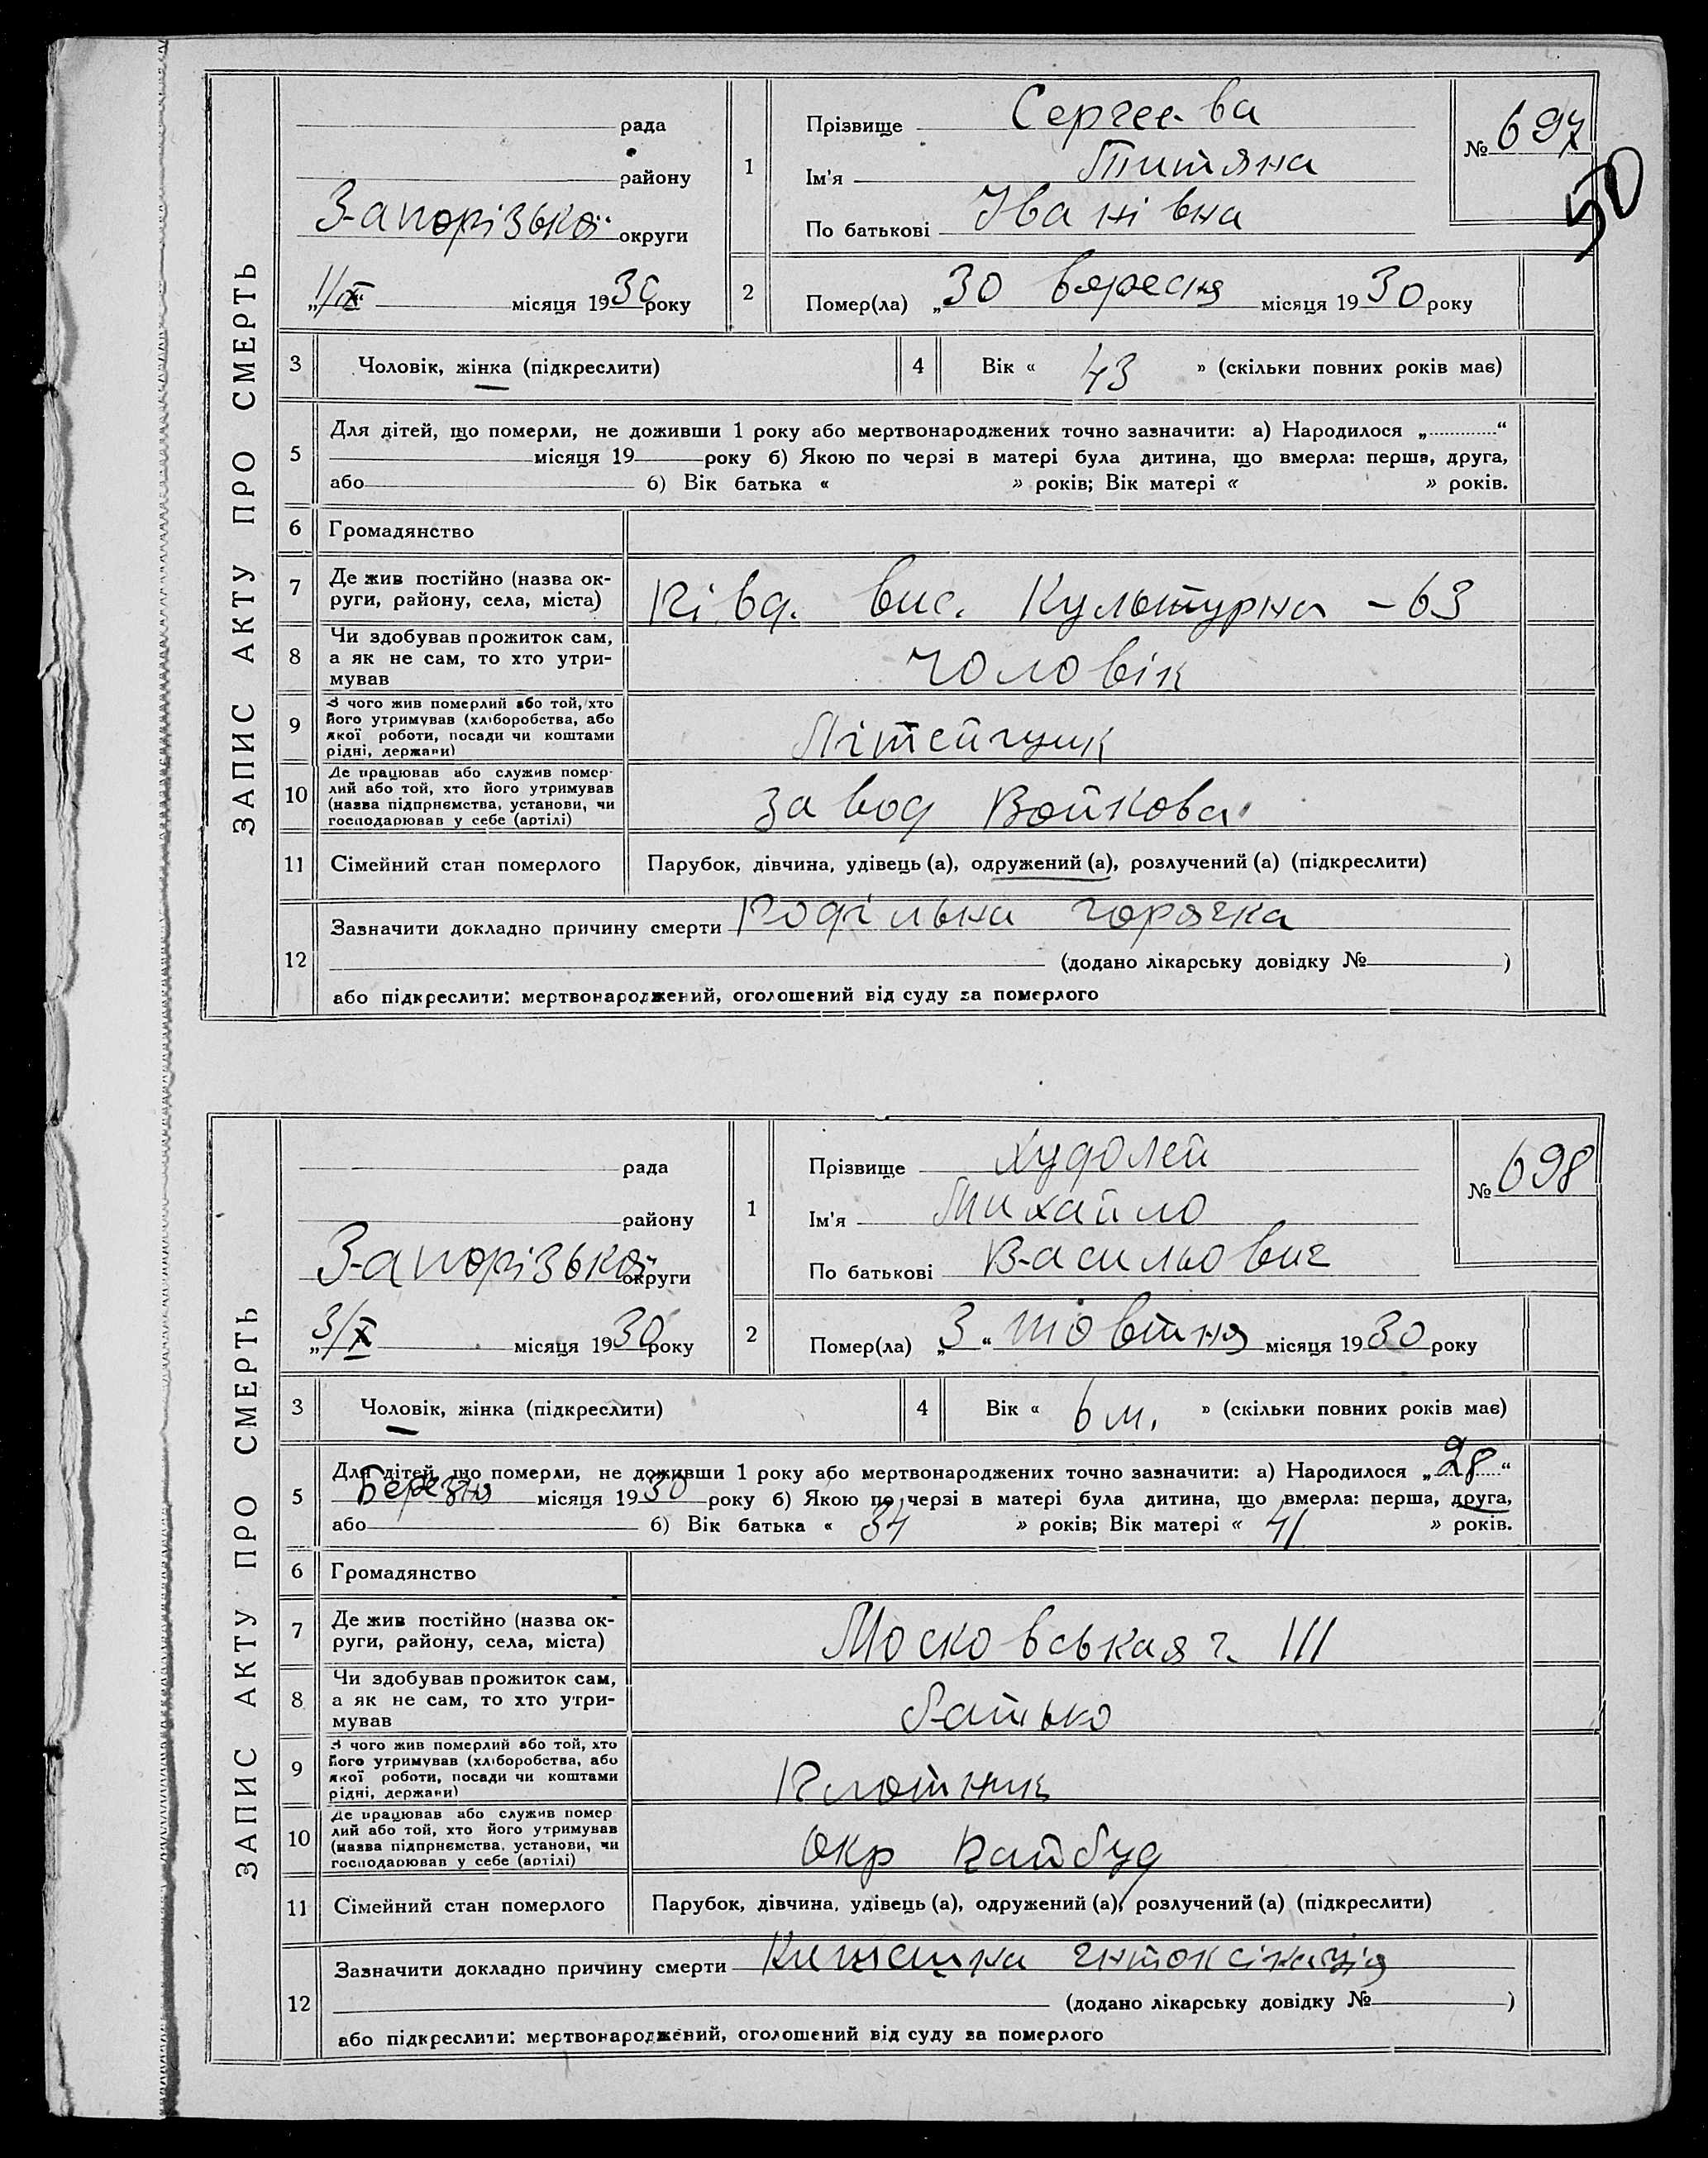 ЗАПИС АКТУ ПРО СМЕРТЬ
рада
району
Запорізької округи
„1/X“ місяця 1930 року
1
Прізвище Сергеева
Ім'я Титяна
По батькові Іванівна
№ 697
50
2
Помер(ла) „30 вересня місяця 1930 року
3 Чоловік, жінка (підкреслити)
4 Вік « 43 » (скільки повних років має)
5 Для дітей, що померли, не доживши 1 року або мертвонароджених точно зазначити: а) Народилося „ “
місяця 19 року б) Якою по черзі в матері була дитина, що вмерла: перша, друга,
або б) Вік батька « » років; Вік матері « » років.
6 Громадянство
7 Де жив постійно (назва округи, району, села, міста) Півд. вис. Культурна – 63
8 Чи здобував прожиток сам, а як не сам, то хто утримував чоловік
9 З чого жив померлий або той, хто його утримував (хліборобства, або якої роботи, посади чи коштами рідні, держави) Літейщик
10 Де працював або служив померлий або той, хто його утримував (назва підприємства, установи, чи господарював у себе (артілі) завод Войкова
11 Сімейний стан померлого Парубок, дівчина, удівець (а), одружений (а), розлучений (а) (підкреслити)
12 Зазначити докладно причину смерти Родільна горячка
(додано лікарську довідку № )
або підкреслити: мертвонароджений, оголошений від суду за померлого
ЗАПИС АКТУ ПРО СМЕРТЬ
рада
району
Запорізької округи
„3/X місяця 1930 року
1
Прізвище Худолей
Ім'я Михайло
По батькові Васильович
№ 698
2
Помер(ла) „3“ жовтня місяця 1930 року
3 Чоловік, жінка (підкреслити)
4 Вік « 6 м. » (скільки повних років має)
5 Для дітей, що померли, не доживши 1 року або мертвонароджених точно зазначити: а) Народилося „28“
Березня місяця 1930 року б) Якою по черзі в матері була дитина, що вмерла: перша, друга,
або б) Вік батька « 34 » років; Вік матері « 41 » років.
6 Громадянство
7 Де жив постійно (назва округи, району, села, міста) Московськая 111
8 Чи здобував прожиток сам, а як не сам, то хто утримував батько
9 З чого жив померлий або той, хто його утримував (хліборобства, або якої роботи, посади чи коштами рідні, держави) Плотник
10 Де працював або служив померлий або той, хто його утримував (назва підприємства, установи, чи господарював у себе (артілі) Окр
11 Сімейний стан померлого Парубок, дівчина, удівець (а), одружений (а), розлучений (а) (підкреслити)
12 Зазначити докладно причину смерти Кишешна інтоксікація
(додано лікарську довідку № )
або підкреслити: мертвонароджений, оголошений від суду за померлого